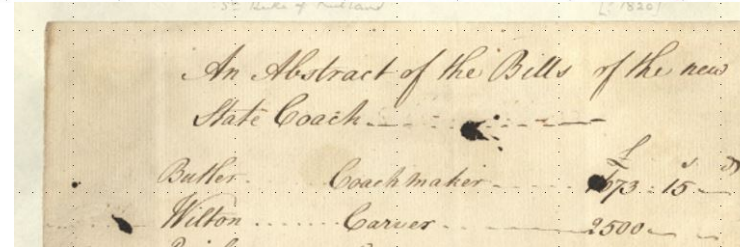 5th Duke of Rutland [c 1820]
An Abstract of the Bills of the new
State Coach
£ s d
Butler Coachmaker 1673 - 15 -
Wilton Carver 2500 - -